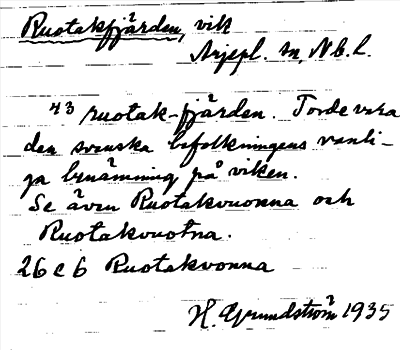 Ruotakfjärden, vik
Arjepl. sn, Nb. l.
43 ruotak-fjärden. Torde vara
den svenska befolkningens vanli-
ga benämning på viken.
Se även Ruotakvuonna och
Ruotakvuotna.
26 c 6 Ruotakvonna
H. Grundström 1935